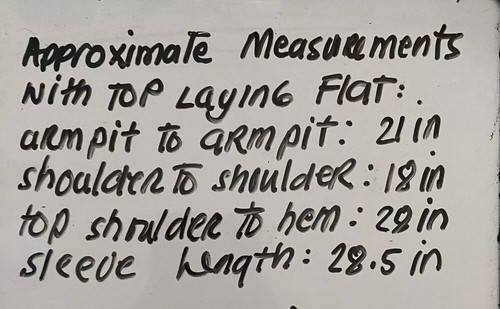 Approximate Measurements
with TOP LAYING FLAT:.
armpit to armpit: 21 in
shoulder To shoulder: 18 in
top shoulder To hem: 28 in
sleeve length: 28.5 in